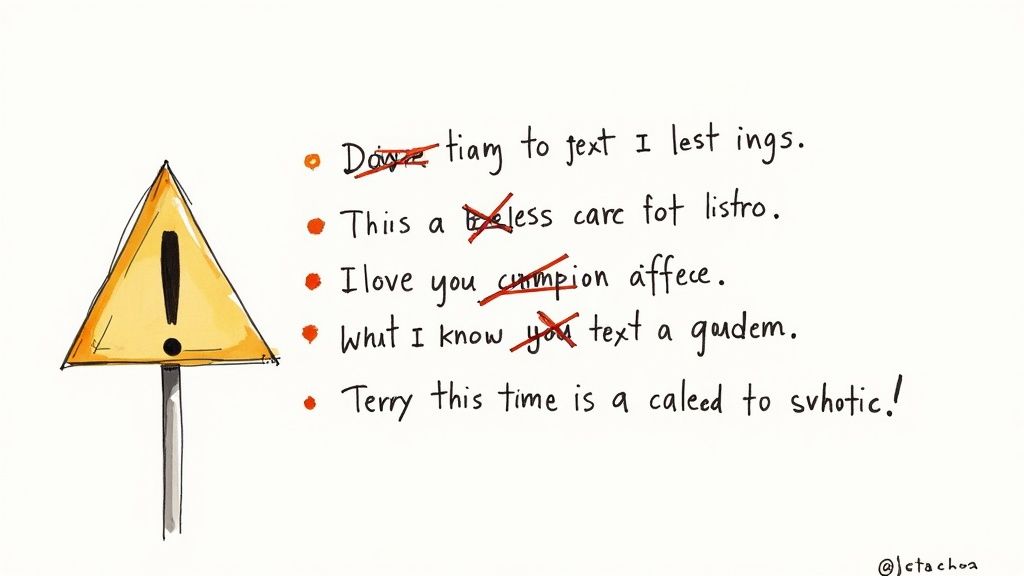 tiany to jext I lest ings.
This a less care fot listro.
I love you cnmpion affece.
Whut I know you text a gaudem.
Terry this time is a caleed to svhotic.!
@Jctachoa